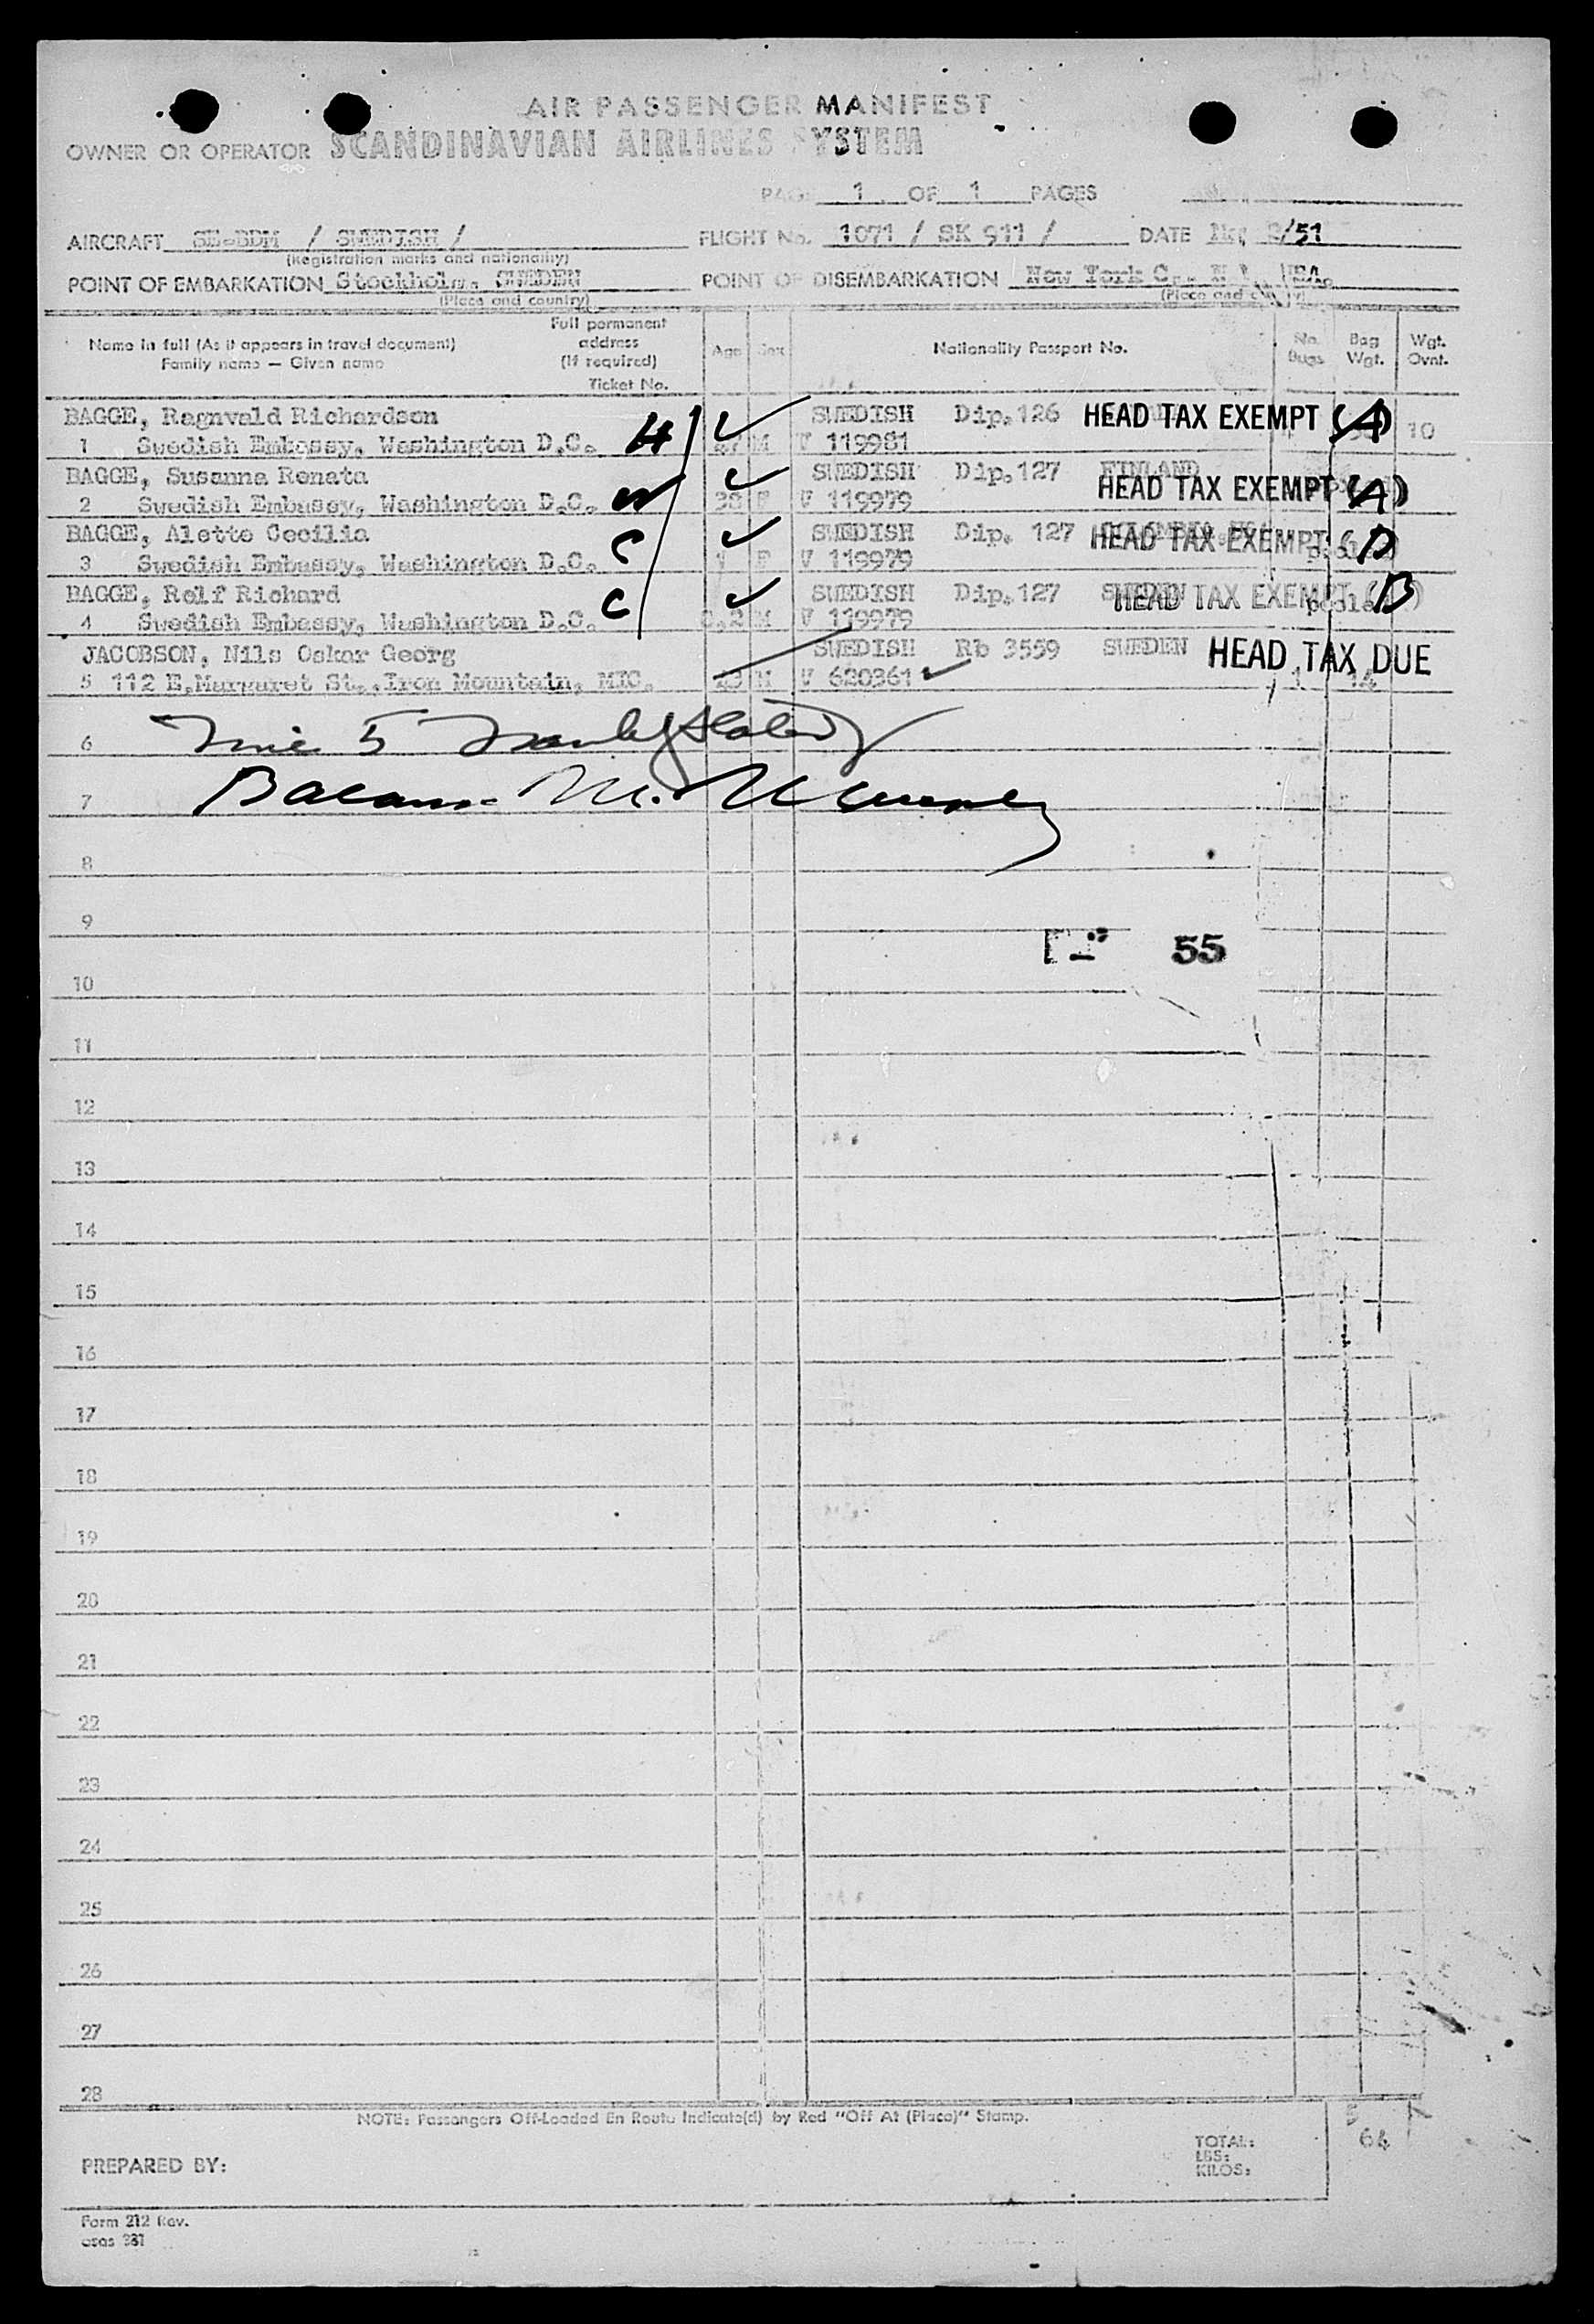 AIR PASSENGER MANIFEST
OWNER OR OPERATOR SCANDINAVIAN AIRLINES SYSTEM
PAGE 1 OF 1 PAGES
AIRCRAFT SE-BDM / SWEDISH / FLIGHT No. 1071 / SK 911 / DATE /51
(Registration marks and nationality)
POINT OF EMBARKATION Stockholm, SWEDEN POINT OF DISEMBARKATION New York C., N.Y., USA.
(Place and country) (Place and country)
Name in full (As it appears in travel document) Full permanent address (If required) Age Sex Nationality Passport No. No. Bags Bag Wgt. Wgt. Ovnt.
Family name — Given name Ticket No.
BAGGE, Ragnvald Richardson SWEDISH Dip.126 HEAD TAX EXEMPT (A)
1 Swedish Embassy, Washington D.C. H M V 119981 10
BAGGE, Susanna Renata SWEDISH Dip.127 FINLAND
2 Swedish Embassy, Washington D.C. W 38 F V 119979 HEAD TAX EXEMPT (A)
BAGGE, Alette Cecilia SWEDISH Dip. 127 HEAD TAX EXEMPT
3 Swedish Embassy, Washington D.C. C 1 F V 119979 pooled
BAGGE, Rolf Richard SWEDISH Dip.127 SWEDEN HEAD TAX EXEMPT
4 Swedish Embassy, Washington D.C. C 0,2 M V 119979 pooled
JACOBSON, Nils Oskar Georg SWEDISH Rb 3559 SWEDEN HEAD TAX DUE
5 112 E.Margaret St., Iron Mountain, MIC. M V 620361 1 14
6 5
7 M.
8
9
55
10
11
12
13
14
15
16
17
18
19
20
21
22
23
24
25
26
27
28
NOTE: Passengers Off-Loaded En Route Indicate(d) by Red "Off At (Place)" Stamp.
5
TOTAL: 64
LBS:
PREPARED BY: KILOS:
Form 212 Rev.